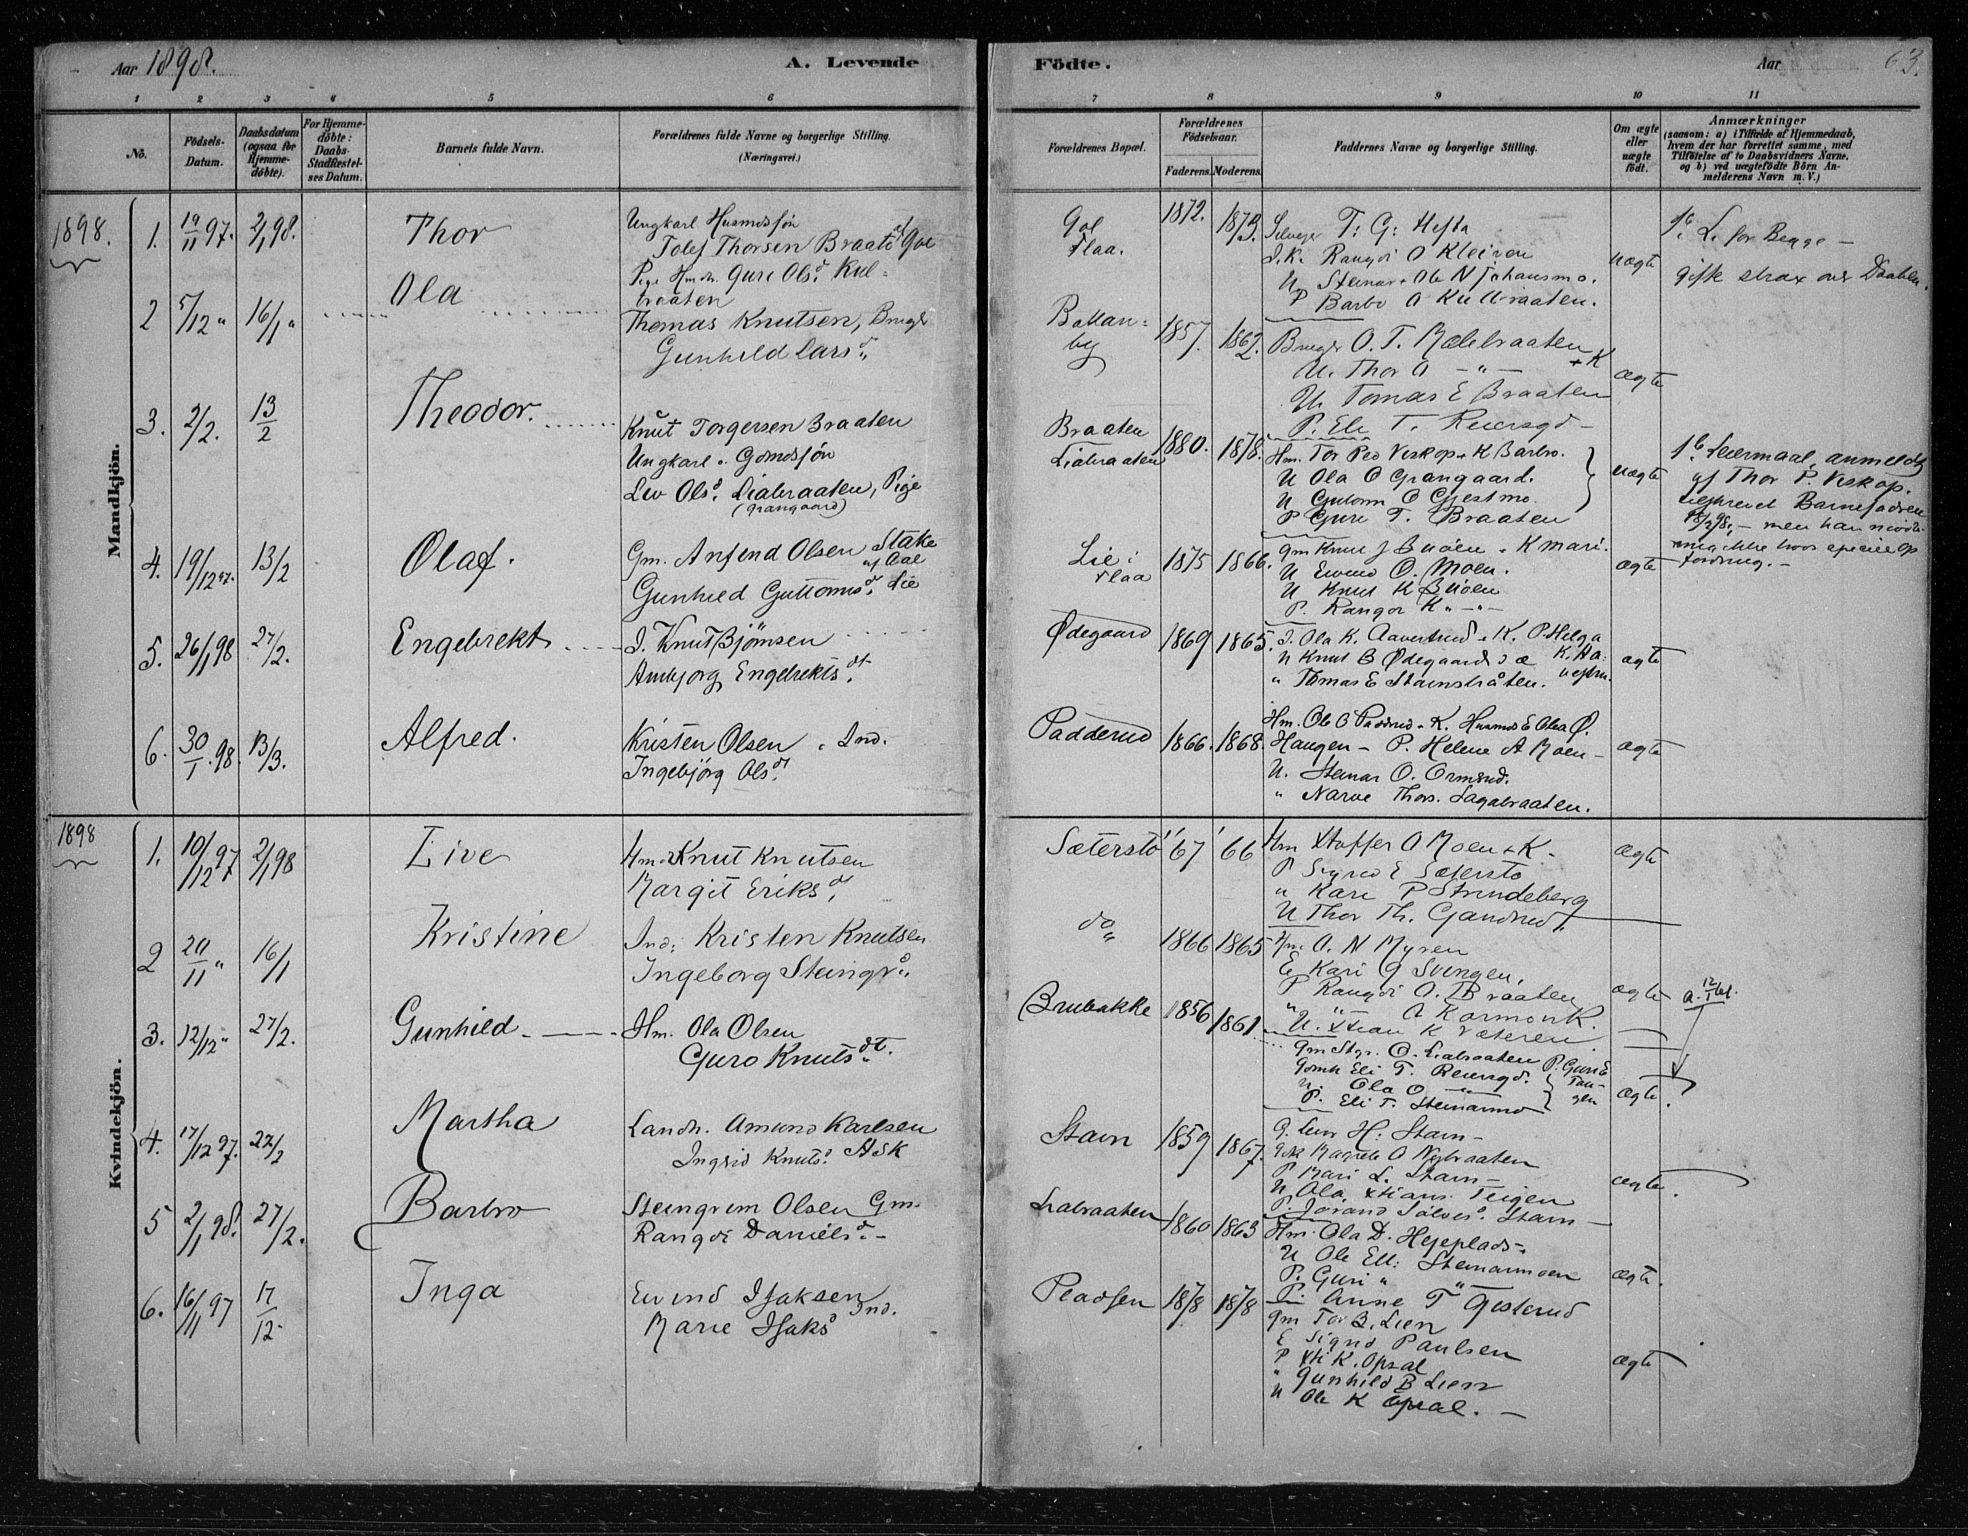 Aar 1898.
A. Levende
Födte.
Aar
63.
1 2 3 4 5 6
7 8 9 10 11
No.
Födsels-
Datum.
Daabsdatum
(ogsaa for
Hjemme-
döbte).
For Hjemme-
döbte:
Daabs-
Stadfæstel-
ses Datum.
Barnets fulde Navn.
Forældrenes fulde Navne og borgerlige Stilling.
(Næringsvei.)
Forældrenes Bopæl.
Forældrenes
Födselsaar.
Faderens. Moderens.
Faddernes Navne og borgerlige Stilling.
Om ægte
eller
uægte
födt.
Anmærkninger
(saasom: a) i Tilfælde af Hjemmedaab,
hvem der har forrettet samme, med
Tilföielse af to Daabsvidners Navne,
og b) ved uægtefödte Börn An-
melderens Navn m. V.)
1898.
Mandkjön.
1. 19/11 97. 2/1 98. Thor
Ungkarl Husmdsjön
Tolef Thorsen Braate Gol
Pige Hmdr. Guri Olsd. Kul-
braaten
Gol
Flaa.
1872. 1873.
Selveier T: G: Hefta
J. K. Rangdi O Kleiven
U Steinar + Ole N Johansmo.
P Barbo O Kulbraaten.
uægte
1ste L. for Begge —
gift strax over Daaben.
2 5/12 " 16/1 " Ola
Thomas Knutsen, Bruger
Gunhild Larsd.
Bakkan-
by
1857. 1862.
Bruger O. T. Mælebraaten + K
U. Thor O — " —
U. Tomas E Braaten
P. Eli T. Reiersgd —
ægte
3. 2/2. 13/2 Theodor.
Knut Torgersen Braaten
Ungkarl Gdmdsjön
Liv Olsd. Liabraaten, Pige
(Grangaard)
Braaten
Liabraaten
1880. 1878.
Hm. Tor Ped Viskop + K Barbro.
U Ola O Grangaard.
U Guttorm O Gjestmo.
P Guri T. Braaten
uægte
1ste Leiermaal, anmeldt
af Thor P. Viskop.
tilskrevet Barnefadren
18/2 98, — men han
fordring. —
4. 19/12 97. 13/2 Olaf.
Gm. Anfind Olsen Stake
af Aal
Gunhild Guttormsd. Lie
Lie i
Flaa
1875 1866.
Gm Knut J Buöen + K Mari.
U Eivind O. Moen.
U Knut K Buöen
P. Rangdi K " — " —
ægte
5. 26/1 98 27/2. Engebrekt
I. Knut Bjömsen
Ambjorg Engebrektsdt.
Ødegaard
1869 1865.
I. Ola K. Aavestrud + K. P. Helga
U Knut B Ødegaard
" Thomas E Stavnstråten.
ægte
6. 30/1 98. 13/3. Alfred.
Kristen Olsen, Ind.
Ingebjörg Olsdt.
Padderud
1866. 1868.
Hm. Ole O Paddrud + K. Husmd E Olea Ø.
Haugen — P. Helene A Moen —
U. Steinar O. Ormsrud.
" Narve Thors. Sagabraaten.
ægte
1898
Kvindekjön.
1. 10/12 97 2/1 98 Live
Hmd Knut Knutsen
Margit Eriksdt.
Sæterstö
'67 '66
Hm Staffer O Moen + K —
P Sigrid E Sæterstö
" Kari P Strindeberg
U Thor Th. Gandrud.
ægte
2 20/11 " 16/1 Kristine
Ind: Kristen Knutsen
Ingeborg Steingrd.
do
1866 1865
Hm. O. N Myren
E Kari G Svingen,
P Rangdi O. Braaten
" — " — O Kormonk.
U. Xtian K Væteren
ægte
a. 12/1 bt.
3. 12/12 " 27/2. Gunhild
Hm. Ola Olsen
Guro Knutsdt.
Brubakke
1856 1861
Gm Styr. O. Liabraaten P. Guri E
Gdmk Eli T. Reiersgd. Tan-
U. Ola O — " — gen
P. Eli T. Steinarmo
ægte.
4. 17/12 97. 27/2 Martha
Landh. Amund Karlsen
Ingrid Knutsd. Ask
Stavn
1859 1867.
G. Leiv H: Stavn —
Gdk Magrete O Nybraaten
P Mari L. Stavn —
U Ola Xtians. Teigen
P. Jörand Sölvesd. Stavn —
ægte.
5 2/1 98. 27/2. Barbro
Steingrim Olsen Gm.
Rangdi Danielsd. —
Liabraaten
1860 1863
Hm. Ola D. Hejeplads —
U Ole Ell: Steinarmoen
P. Guri " "
P. Anne T Gisterud
ægte.
6. 16/11 97 17/12. Inga
Eivind Isaksen
Ind.
Marie Isaksd
Pladsen
1878. 1878
Gm Tor B. Lien
E Sigrid Paulsen
P Xti K. Opsal
" Gunhild B Lien
U Ole K Opsal. —
ægte